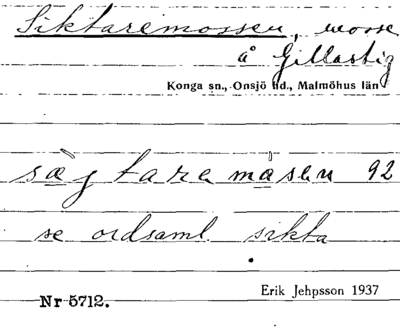 Siktaremossen, mosse
å Gillastig
Konga sn., Onsjö hd., Malmöhus län
sægtaremåsen 92
se ordsaml. sikta
Erik Jehpsson 1937
Nr 5712.